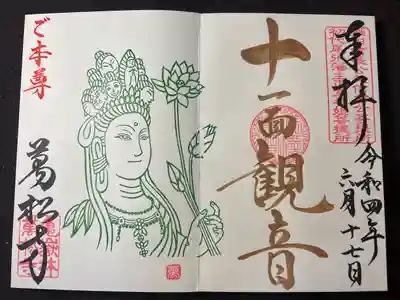 奉拝
令和四年
六月十七日
十一面観音
ご本尊
萬松寺